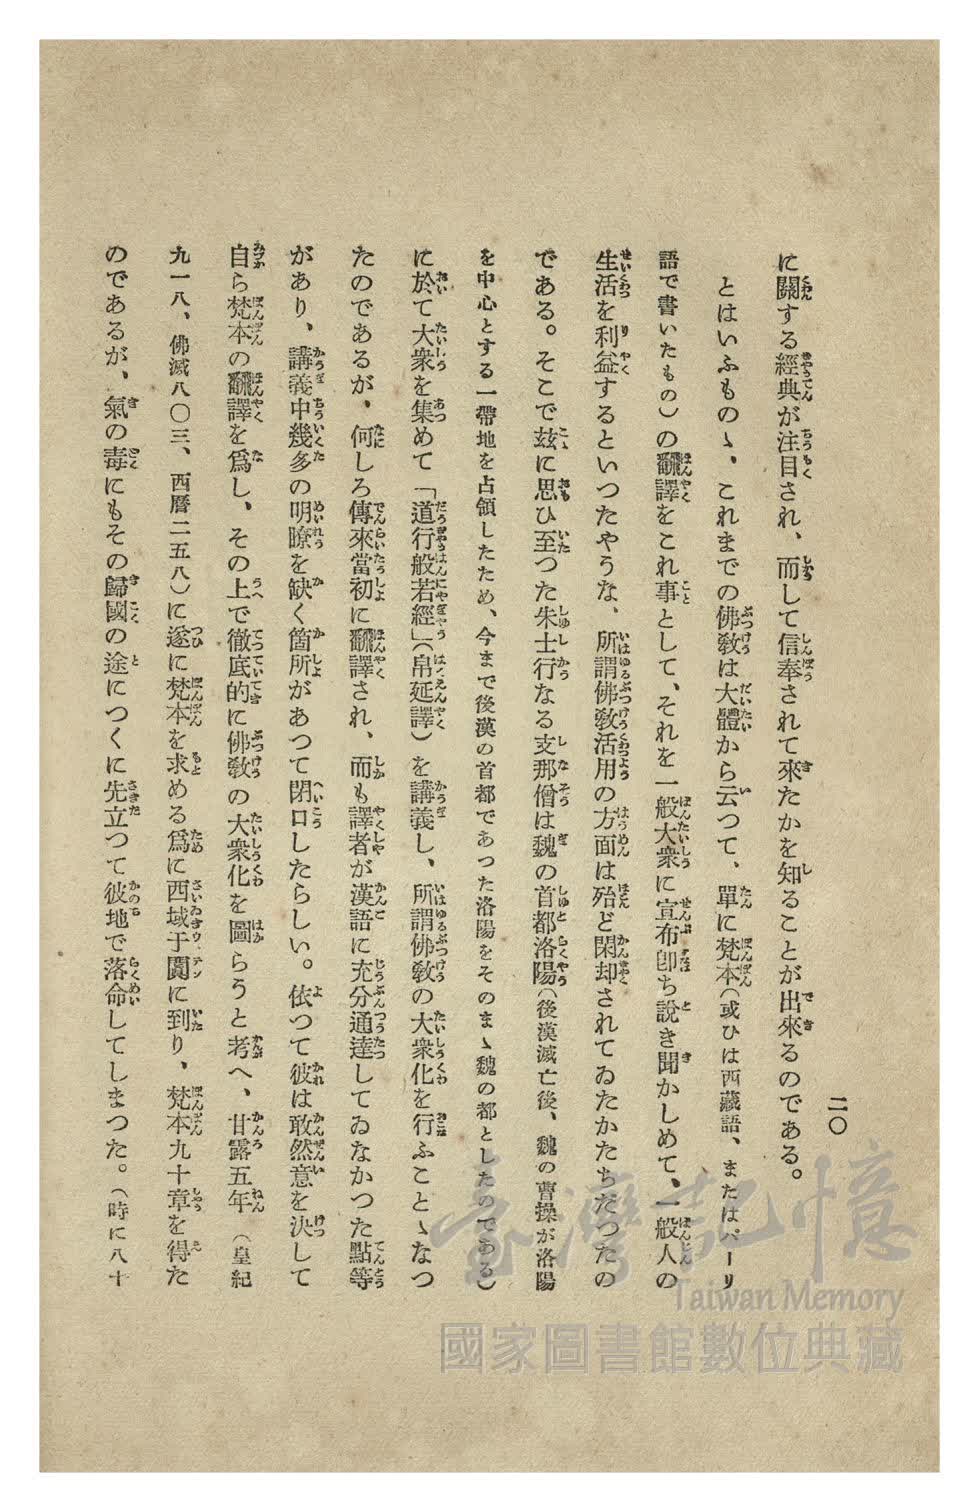 二〇
に關する經典が注目され、而して信奉されて來たかを知ることが出來るのである。
とはいふものゝ、これまでの佛敎は大體から云つて、單に梵本（或ひは西藏語、またはパーリ
語で書いたもの）の飜譯をこれ事として、それを一般大衆に宣布卽ち說き聞かしめて、一般人の
生活を利益するといつたやうな、所謂佛敎活用の方面は殆ど閑却されてゐたかたちだつたの
である。そこで玆に思ひ至つた朱士行なる支那僧は魏の首都洛陽（後漢滅亡後、魏の曹操が洛陽
を中心とする一帶地を占領したため、今まで後漢の首都であつた洛陽をそのまゝ魏の都としたのである）
に於て大衆を集めて「道行般若經」（帛延譯）を講義し、所謂佛敎の大衆化を行ふことゝなつ
たのであるが、何しろ傳來當初に飜譯され、而も譯者が漢語に充分通達してゐなかつた點等
があり、講義中幾多の明瞭を缺く箇所があつて閉口したらしい。依つて彼は敢然意を決して
自ら梵本の飜譯を爲し、その上で徹底的に佛敎の大衆化を圖らうと考へ、甘露五年（皇紀
九一八、佛滅八〇三、西曆二五八）に遂に梵本を求める爲に西域于闐に到り、梵本九十章を得た
のであるが、氣の毒にもその歸國の途につくに先立つて彼地で落命してしまつた。（時に八十
臺灣記憶
Taiwan Memory
國家圖書館數位典藏